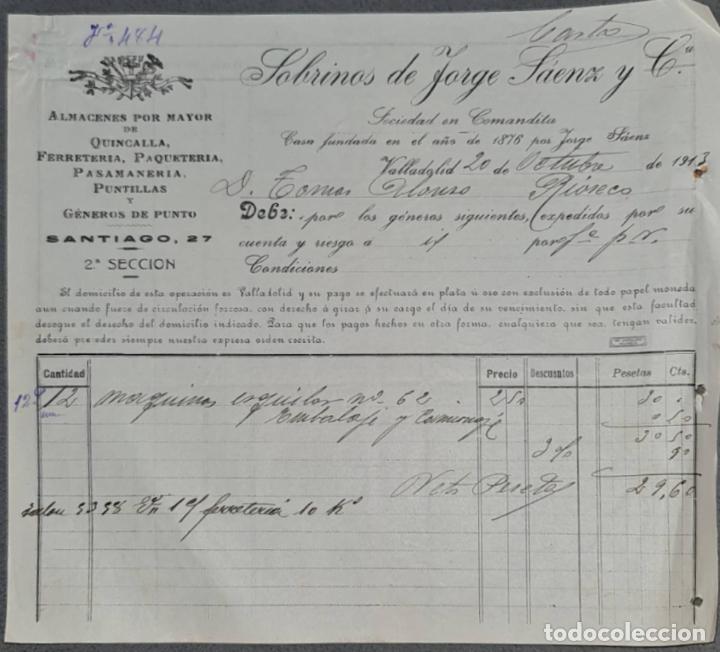 484
Sobrinos de Jorge Sáenz y Cª
ALMACENES POR MAYOR
DE
QUINCALLA,
FERRETERIA, PAQUETERIA,
PASAMANERIA,
PUNTILLAS
Y
GÉNEROS DE PUNTO
SANTIAGO, 27
2.ª SECCION
Sociedad en Comandita
Casa fundada en el año de 1876 por Jorge Sáenz
Valladolid 20 de Octubre de 1913
D. Tomas Alonso Rioseco
Debe: por los géneros siguientes, expedidos por su
cuenta y riesgo á id por f.c. p.v.
Condiciones
El domicilio de esta operación es Valladolid y su pago se efectuará en plata ú oro con exclusión de todo papel moneda
aun cuando fuere de circulación forzosa, con derecho á girar á su cargo el día de su vencimiento, sin que esta facultad
derogue el derecho del domicilio indicado. Para que los pagos hechos en otra forma, cualquiera que sea, tengan validez,
deberá preceder siempre nuestra expresa orden escrita.
Cantidad Precio Descuentos Pesetas Cts.
12 maquinas esquilar nº 62 2 50 30
Embalaje y 0 50
30 50
3 % 90
Neto Pesetas 29,60
3398 19 ferreteria 10 Kº
todocoleccion
todocoleccion.net